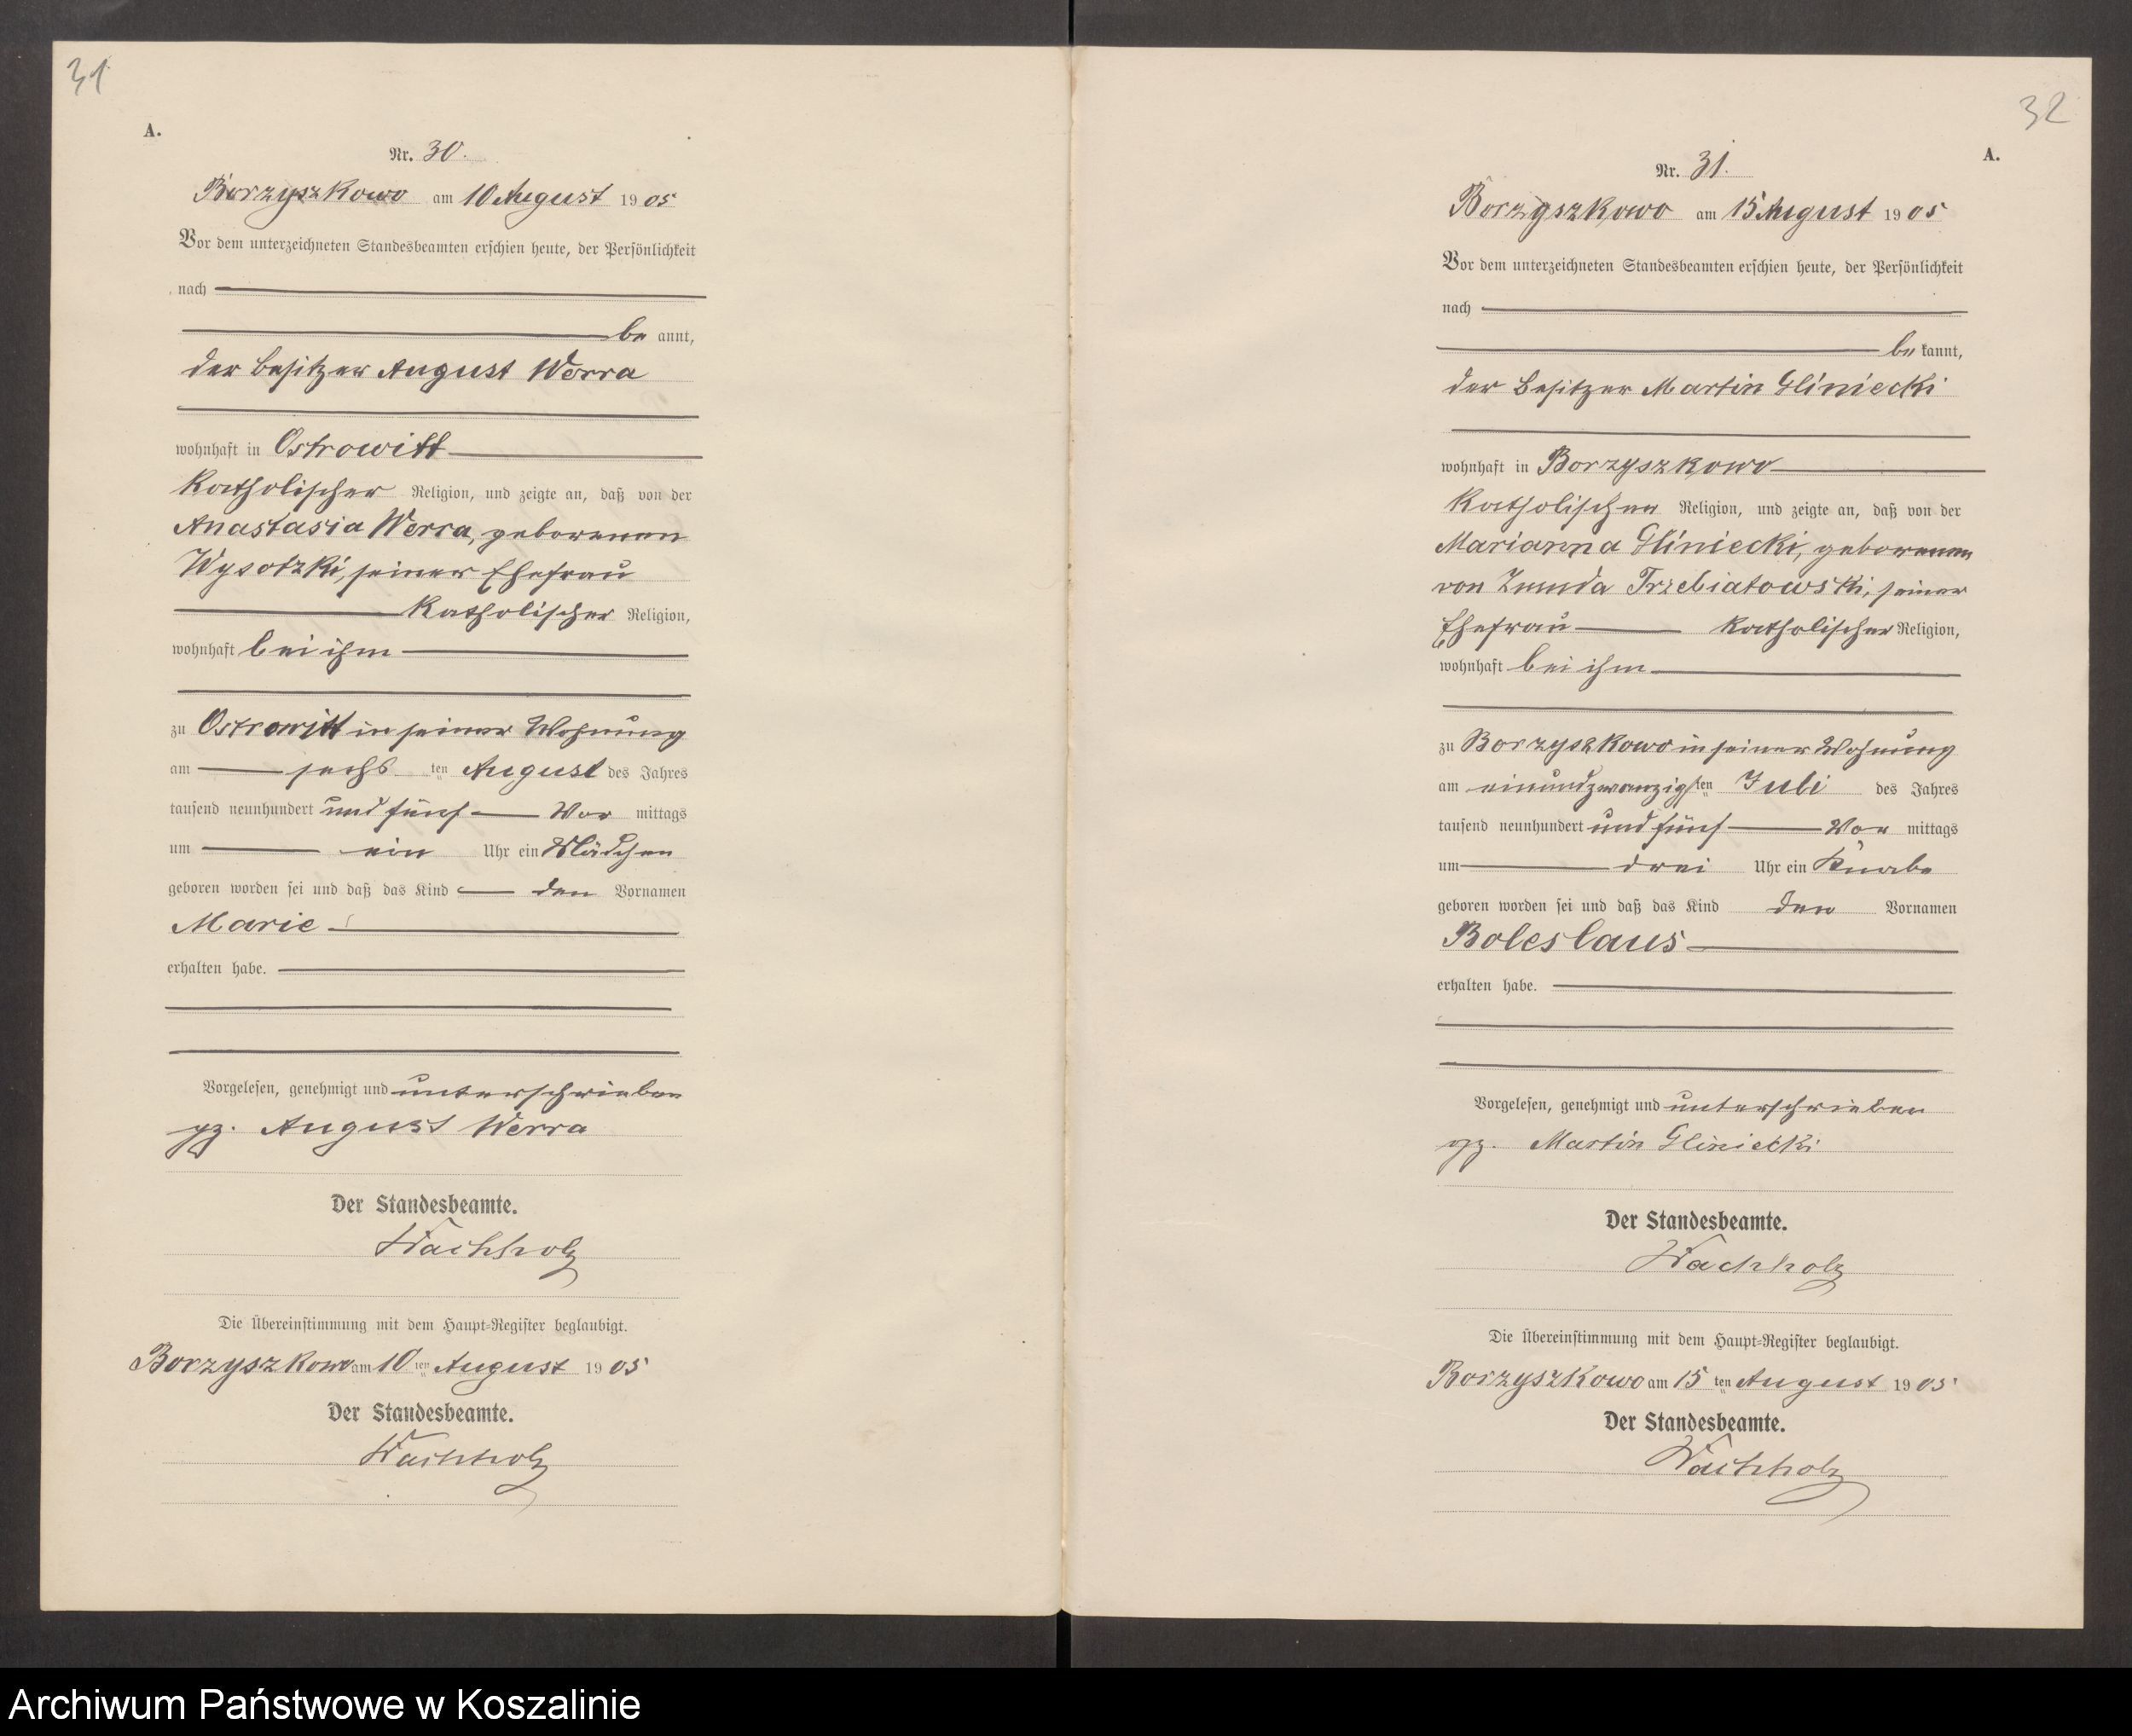 31
A.
Nr. 30.
Borzyszkowo am 10 August 1905
Vor dem unterzeichneten Standesbeamten erschien heute, der Persönlichkeit
nach
be annt,
der Besitzer August Werra
wohnhaft in Ostrowitt
katholischer Religion, und zeigte an, daß von der
Anastasia Werra, geborenen
Wysotzki, seiner Ehefrau
katholischer Religion,
wohnhaft bei ihm
zu Ostrowitt in seiner Wohnung
am sechsten August des Jahres
tausend neunhundert und fünf Vor mittags
um ein Uhr ein Mädchen
geboren worden sei und daß das Kind den Vornamen
Marie
erhalten habe.
Vorgelesen, genehmigt und unterschrieben
gz. August Werra
Der Standesbeamte.
Wachholz
Die Übereinstimmung mit dem Haupt-Register beglaubigt.
Borzyszkowo am 10ten August 1905
Der Standesbeamte.
Wachholz
32
A.
Nr. 31.
Borzyszkowo am 15 August 1905
Vor dem unterzeichneten Standesbeamten erschien heute, der Persönlichkeit
nach
be kannt,
der Besitzer Martin Gliniecki
wohnhaft in Borzyszkowo
katholischen Religion, und zeigte an, daß von der
Marianna Gliniecki, geborenen
von Zmuda Trzebiatowski, seiner
Ehefrau katholischer Religion,
wohnhaft bei ihm
zu Borzyszkowo in seiner Wohnung
am einundzwanzigsten Juli des Jahres
tausend neunhundert und fünf Vor mittags
um drei Uhr ein Knabe
geboren worden sei und daß das Kind den Vornamen
Boleslaus
erhalten habe.
Vorgelesen, genehmigt und unterschrieben
gz. Martin Gliniecki
Der Standesbeamte.
Wachholz
Die Übereinstimmung mit dem Haupt-Register beglaubigt.
Borzyszkowo am 15ten August 1905
Der Standesbeamte.
Wachholz
Archiwum Państwowe w Koszalinie